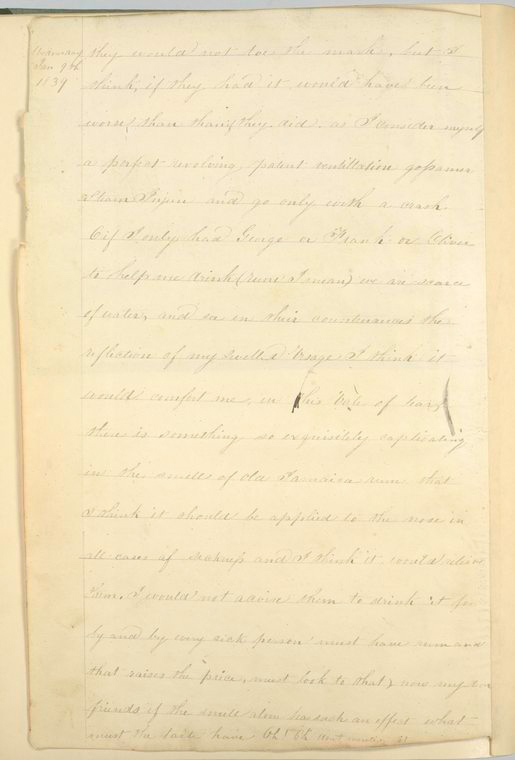 Jan 9th
1839
they would not toe the mark, but I
think, if they had it would have been
worse than than they did. as I consider myself
a perfect revolving patent ventillation gossamer
Steam Injin and go only with a crash
O if I only had George or Frank or Oliver
to help me drink (rum I mean) we are scarce
of water, and see in their countenances the
reflection of my swelled visage I think it
would comfort me, in this Vale of tears
there is something so exquisitely captivating
in the smell of Old Jamaica rum that
I think it should be applied to the nose in
all cases of sickness and I think it would relieve
them, I would not advise them to drink it
and by every sick person must have rum and
that raises the price, must look to that) now my
friends if the smell alone has such an effect what
must the taste have Oh! Oh dont mention it